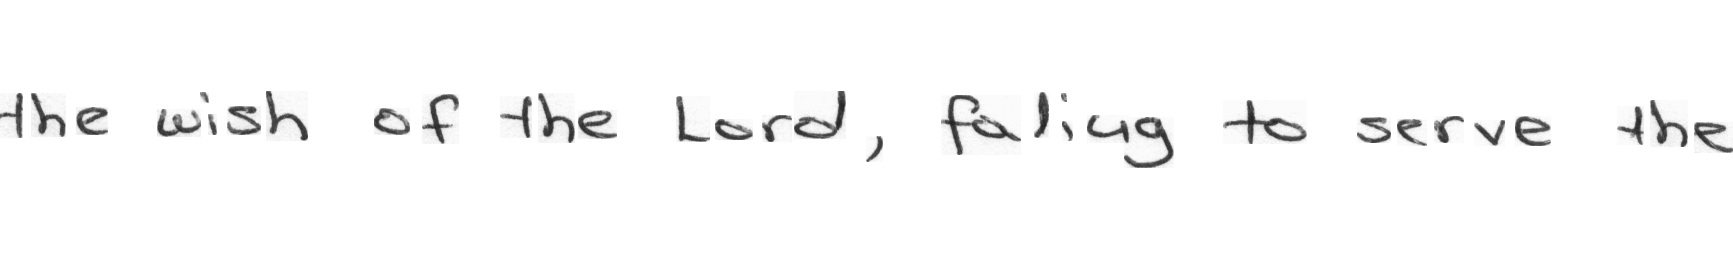 the wish of the Lord, faling to serve the